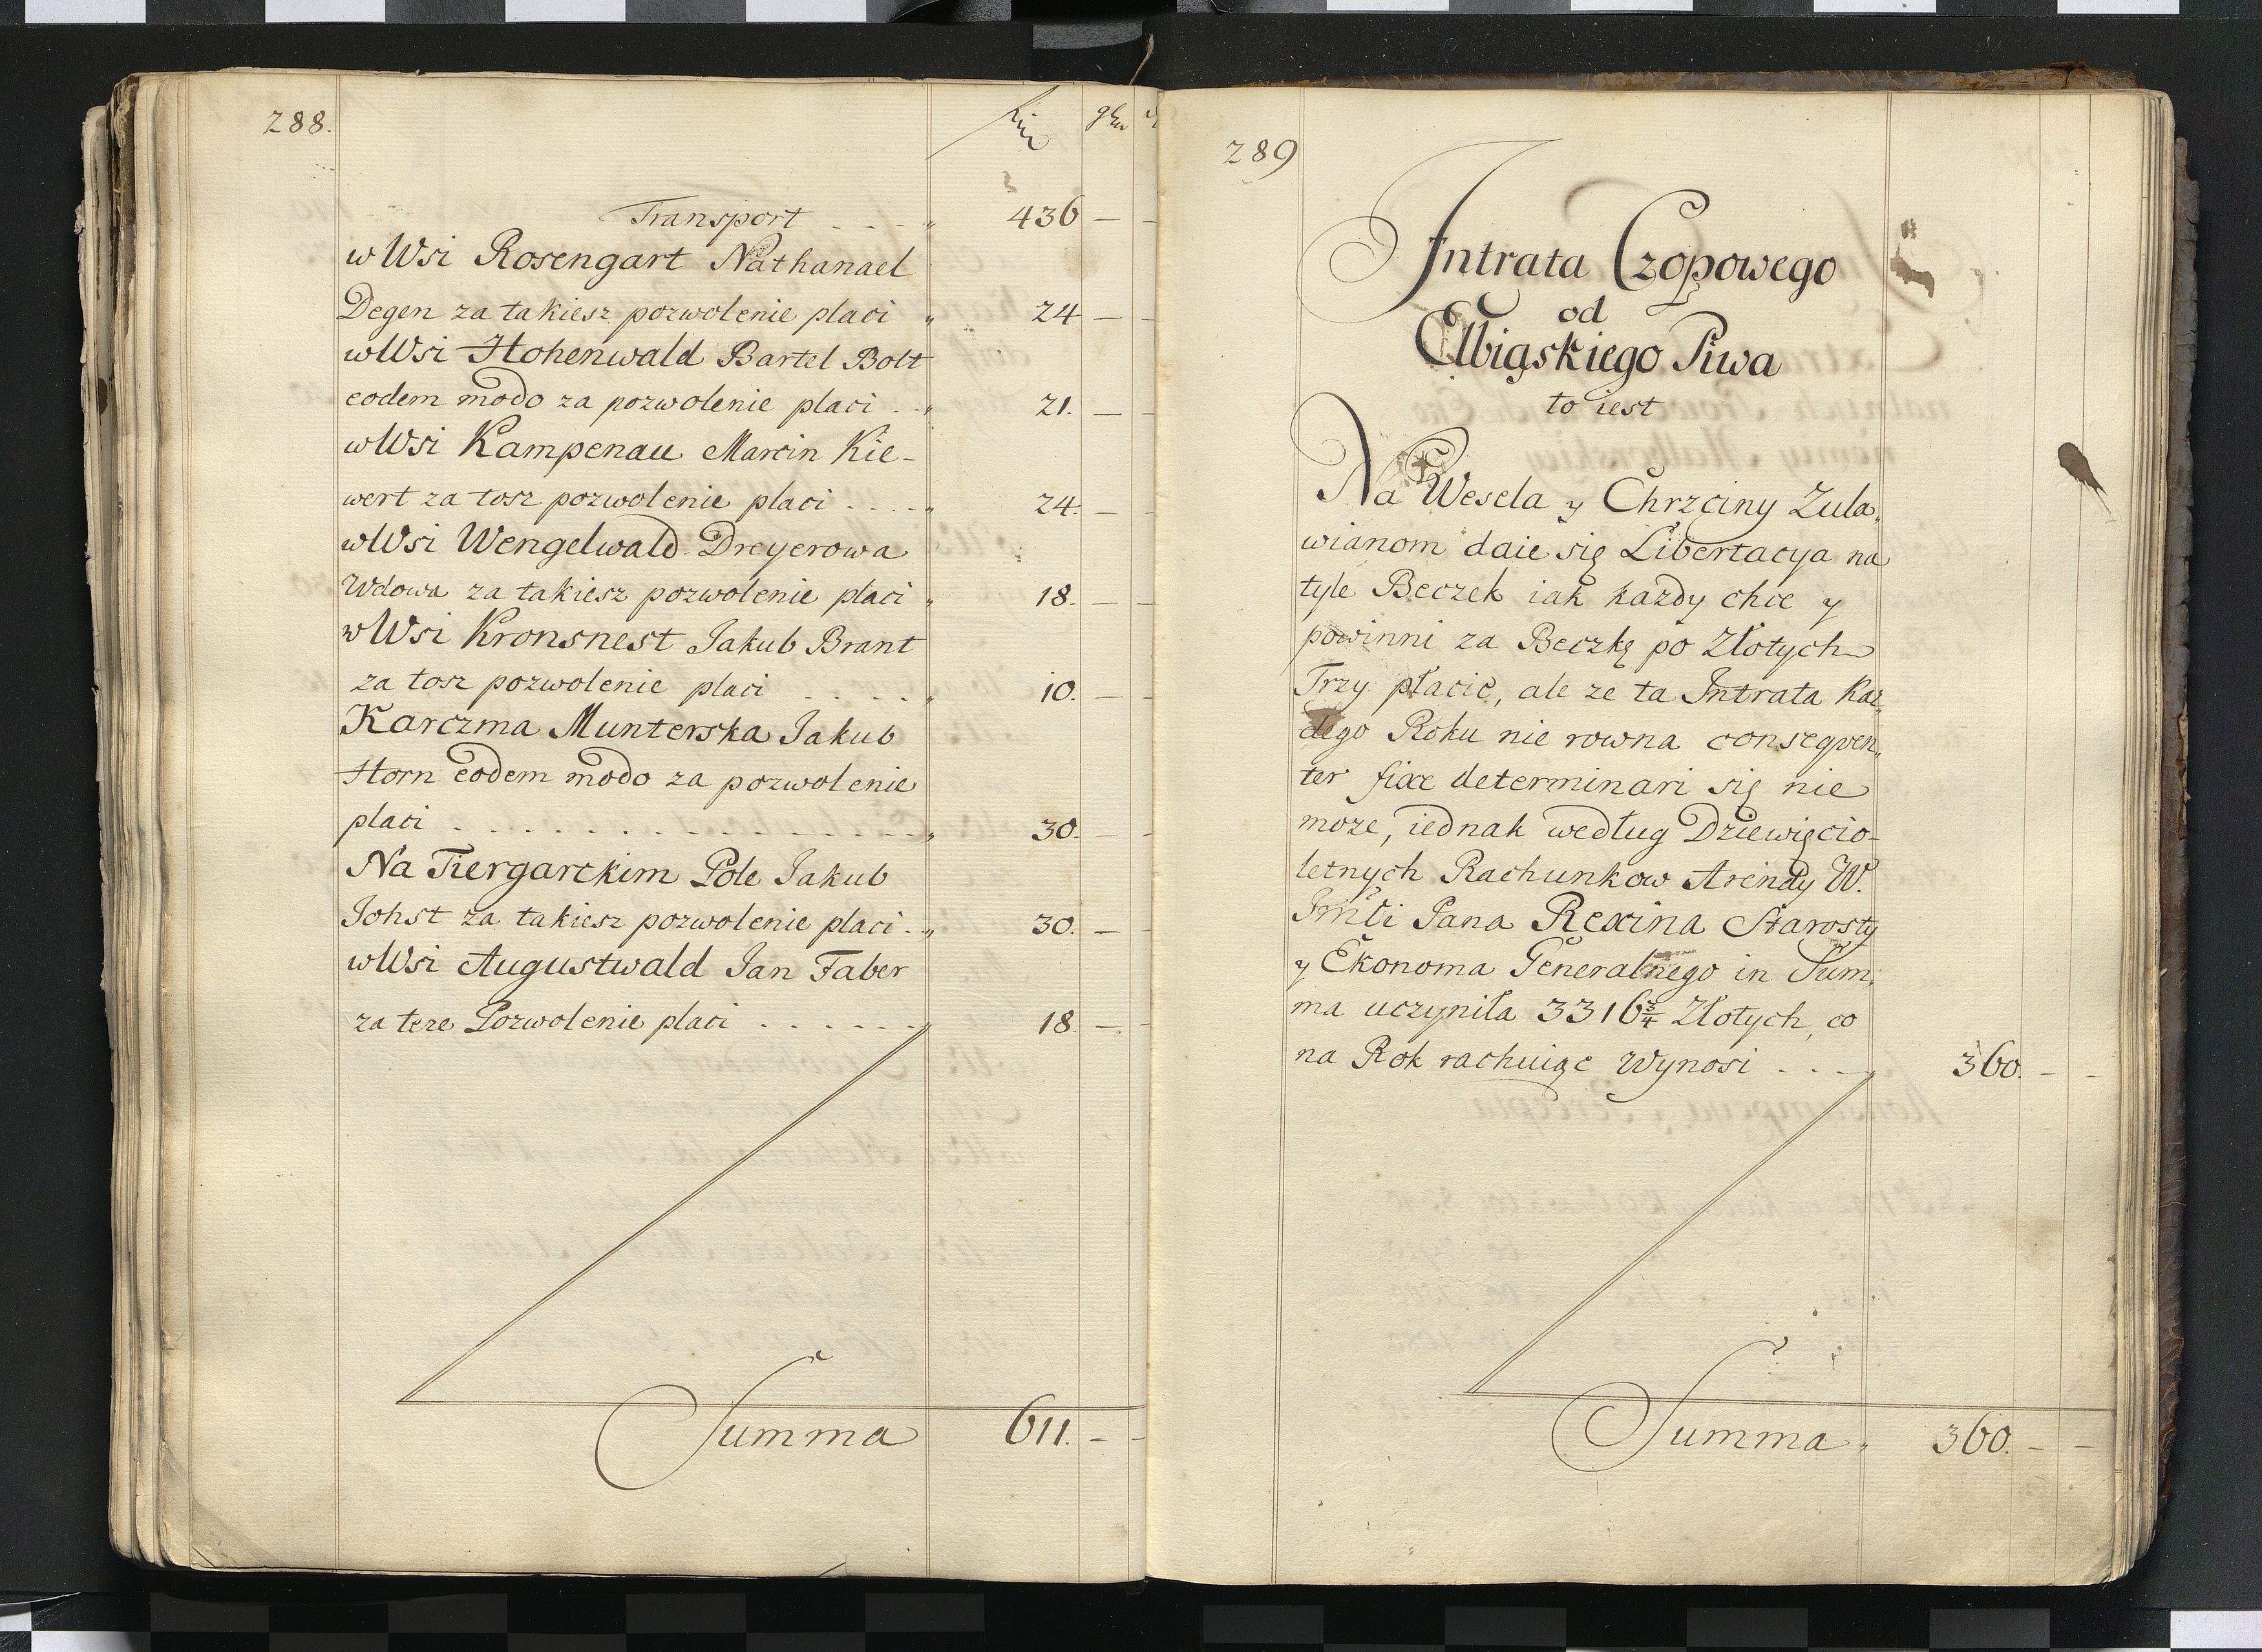 288.
gr
Transport . . . . „ 436 – –
w Wsi Rosengart Nathanael
Degen za takiesz pozwolenie placi „ 24 – –
w Wsi Hohenwald Bartel Bolt
eodem modo za pozwolenie placi . . „ 21. – –
w Wsi Kampenau Marcin Kie-
wert za tosz pozwolenie placi . . . . „ 24. – –
w Wsi Wengelwald Dreyerowa
Wdowa za takiesz pozwolenie placi „ 18. – –
w Wsi Kronsnest Jakub Brant
za tosz pozwolenie placi . . . . „ 10. – –
Karczma Munterska Jakub
Horn eodem modo za pozwolenie
placi . . . . . . . . . . . . . . „ 30. – –
Na Tiergartkim Pole Jakub
Johst za takiesz pozwolenie placi . „ 30. – –
w Wsi Augustwald Jan Faber
za teze Pozwolenie placi . . . . . . . 18. – –
Summa 611. – –
289
Intrata Czopowego
od
Elbiąskiego Piwa
to iest
Na Wesela y Chrzciny Zula„
wianom daie się Libertacya na
tyle Beczek iak kazdy chce y
powinni za Beczkę po Złotych
Trzy płacić, ale ze ta Intrata Kaz„
dego Roku nie rowna conseqven„
ter fixe determinari się nie
moze, iednak według Dziewięcio-
letnych Rachunkow Arendy W.
Jmści Pana Rexina Starosty
y Ekonoma Generalnego in Sum„
ma uczyniła 3316 3/4 Złotych, co
na Rok rachuiąc Wynosi . . . . 360. – –
Summa „ 360. – –